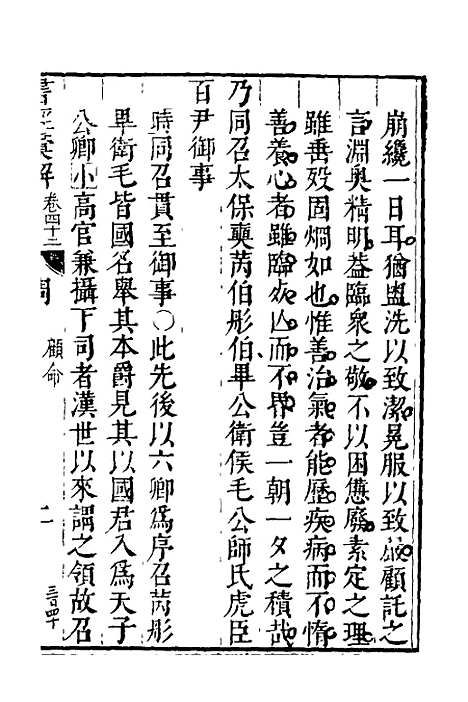 崩纔一日耳猶盥洗以致潔冕服以致嚴顧託之
言淵奧精明葢臨衆之敬不以困憊廢素定之理
雖垂歿固烱如也惟善治氣者能歷疾病而不惰
善養心者雖臨死而不昬豈一朝一夕之積哉
乃同召太保奭芮伯彤伯畢公衛侯毛公師氏虎臣
百尹御事
時同召貫至御事〇此先後以六卿爲序召芮彤
畢衛毛皆國名舉其本爵見其以國君入爲天子
公卿小高官兼攝下司者漢世以來謂之領故召
書經 解 卷四十三 周 顧命 二